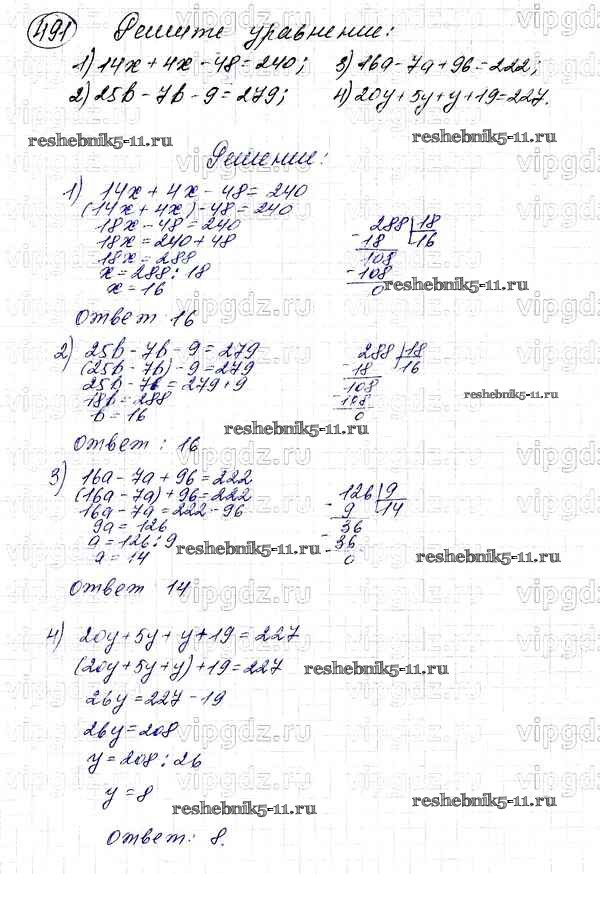 491 Решите уравнение:
1) 14x + 4x - 48 = 240; 3) 16a - 7a + 96 = 222;
2) 25b - 7b - 9 = 279; 4) 20y + 5y + y + 19 = 227.
reshebnik5-11.ru reshebnik5-11.ru
Решение:
1) 14x + 4x - 48 = 240
(14x + 4x) - 48 = 240
18x - 48 = 240
18x = 240 + 48
18x = 288
x = 288 : 18
x = 16
288 | 18
- 18 16
108
- 108
0
reshebnik5-11.ru
Ответ 16
2) 25b - 7b - 9 = 279
(25b - 7b) - 9 = 279
25b - 7b = 279 + 9
18b = 288
b = 16
288 | 18
- 18 16
108
- 108
0
reshebnik5-11.ru
Ответ : 16
reshebnik5-11.ru
3) 16a - 7a + 96 = 222
(16a - 7a) + 96 = 222
16a - 7a = 222 - 96
9a = 126
a = 126 : 9
a = 14
126 | 9
- 9 14
36
- 36
0
reshebnik5-11.ru reshebnik5-11.ru
Ответ 14
4) 20y + 5y + y + 19 = 227
(20y + 5y + y) + 19 = 227
reshebnik5-11.ru
26y = 227 - 19
26y = 208
y = 208 : 26
y = 8
reshebnik5-11.ru reshebnik5-11.ru
Ответ : 8.
vipgdz.ru